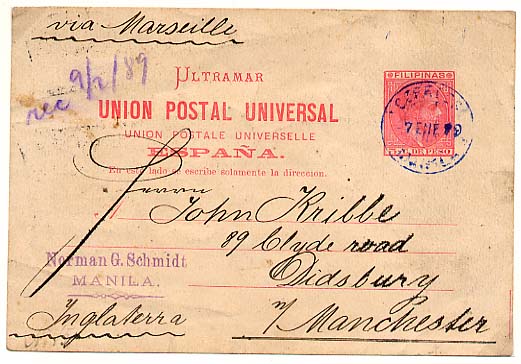 via Marseille
rec 9/2/89
ULTRAMAR
UNION POSTAL UNIVERSAL
UNION POSTALE UNIVERSELLE
ESPAÑA.
En este lado se escribe solamente la direccion.
FILIPINAS
DE PESO
7 ENE 89
MANILA
Herrn
John Kribbe
89 Clyde road
Didsbury
n/ Manchester
Norman G. Schmidt
MANILA.
Inglaterra